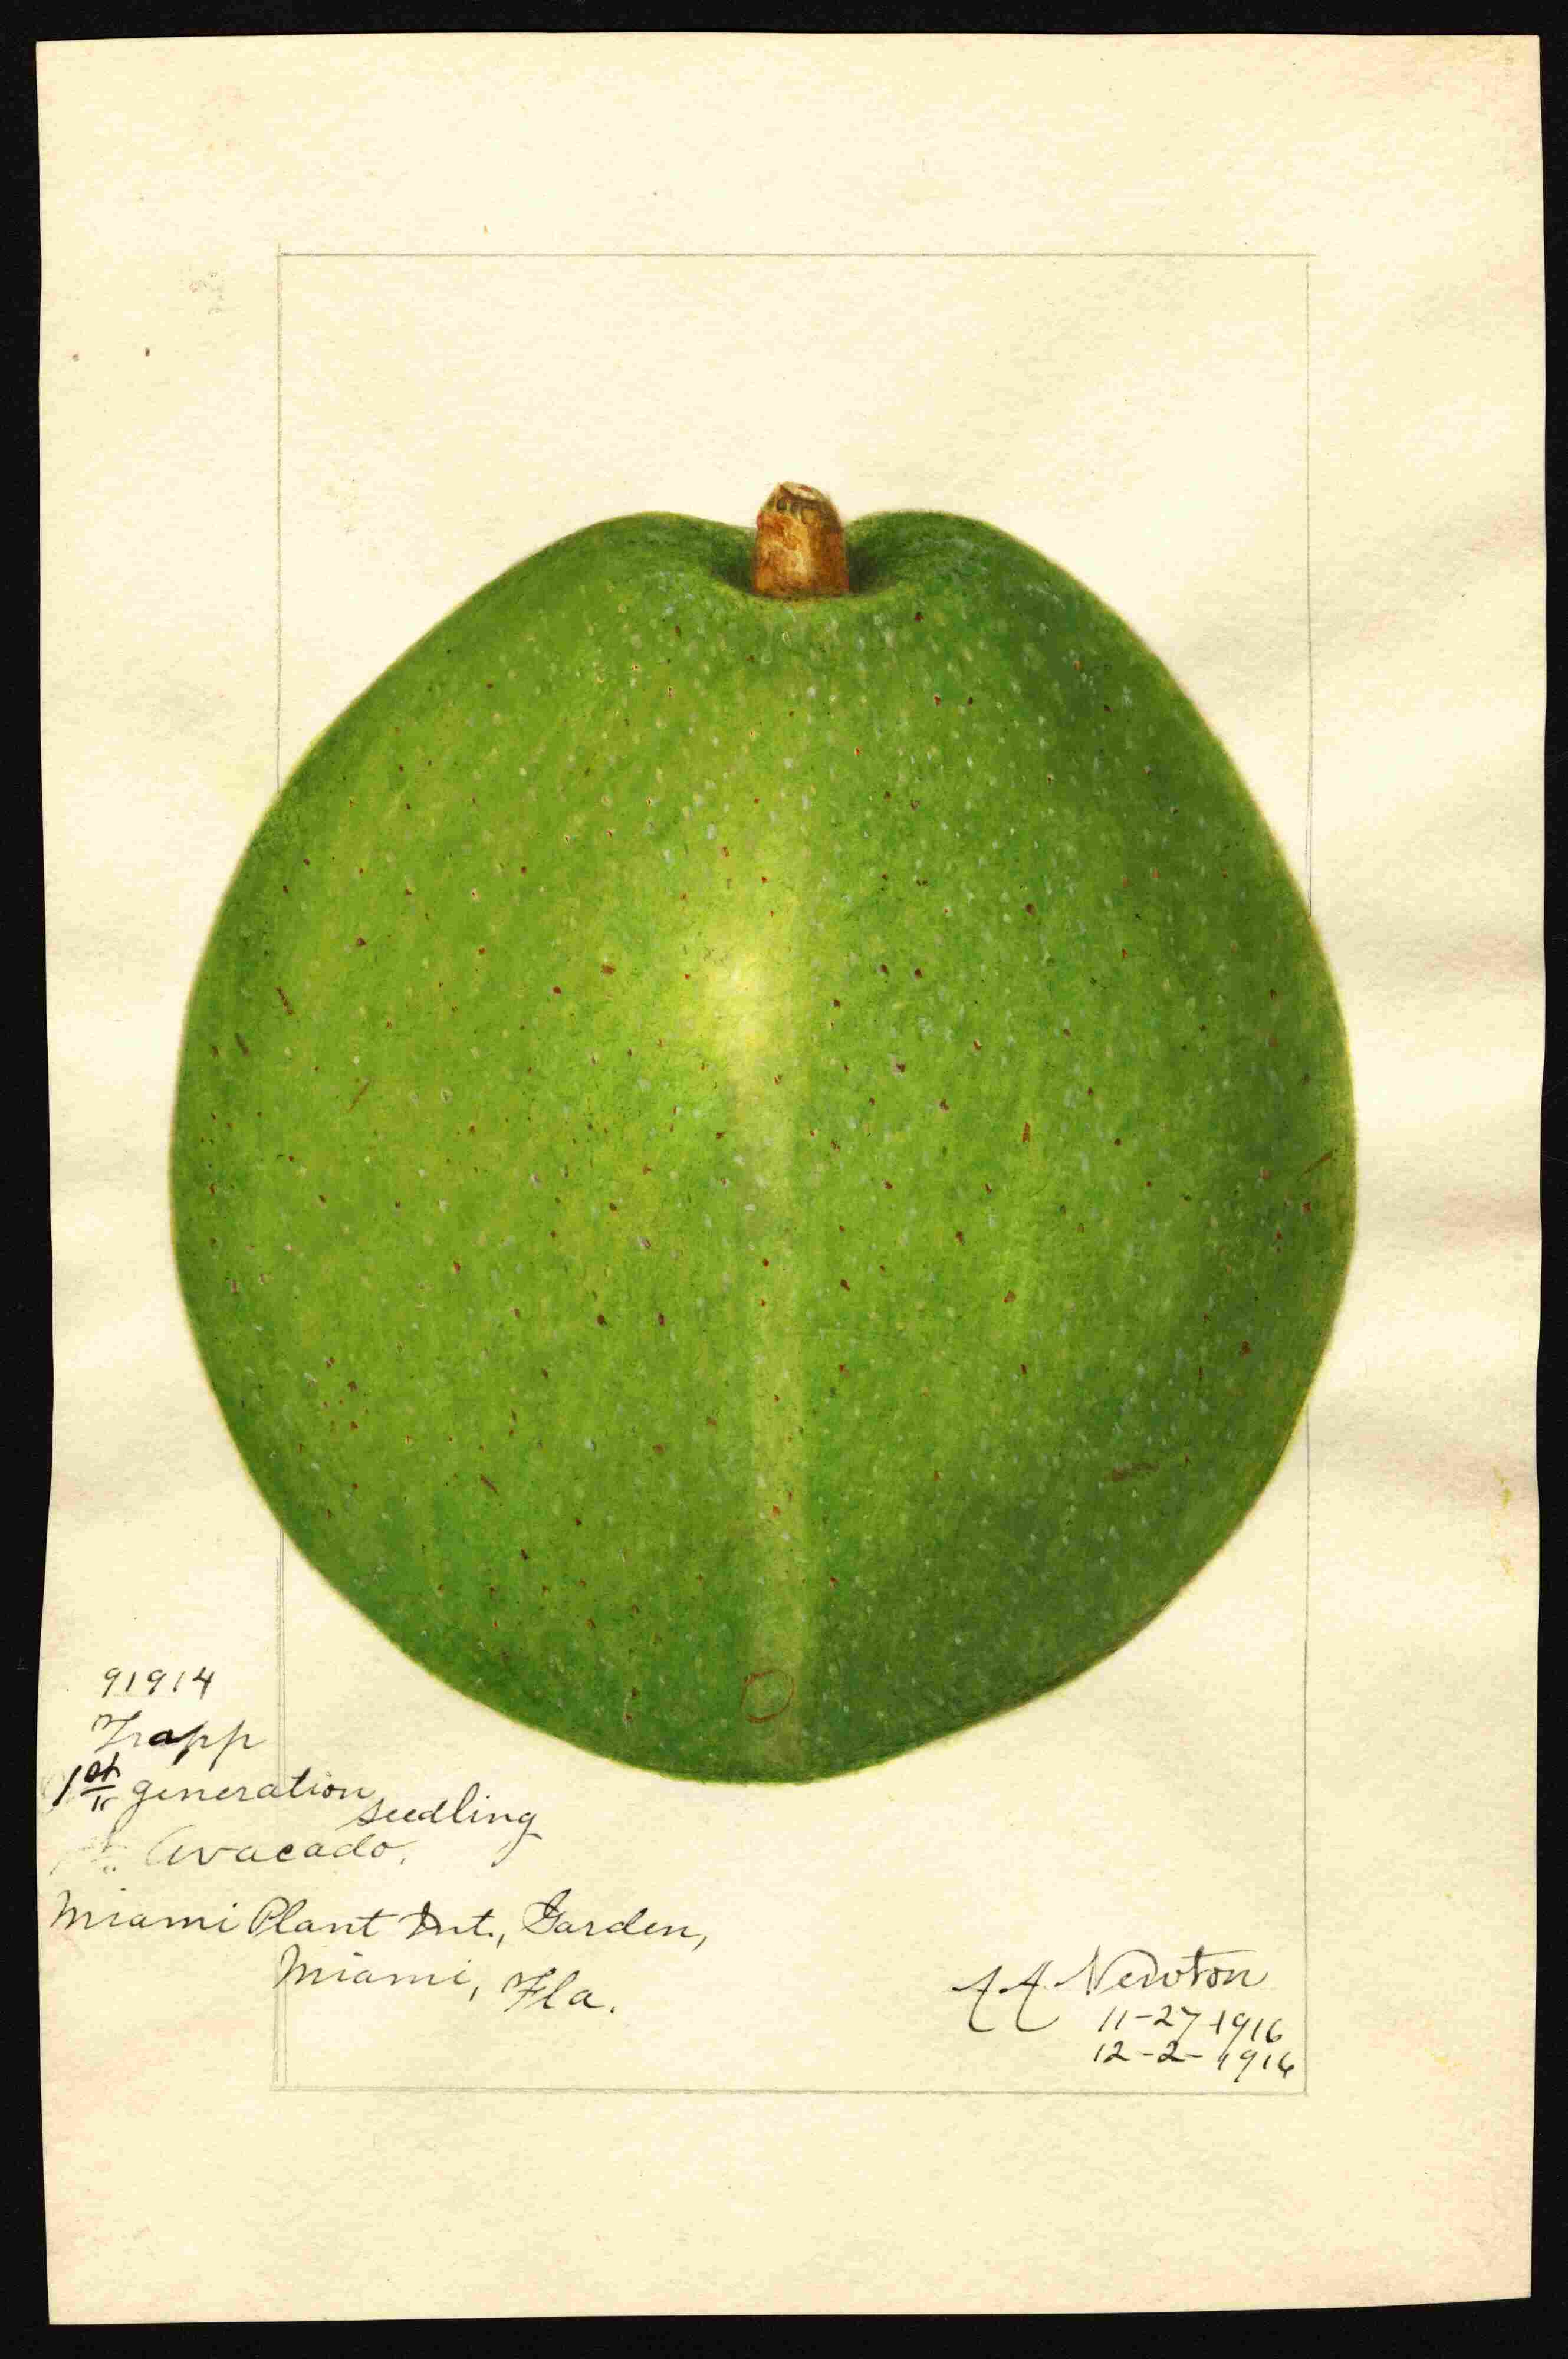 91914
Trapp
1st generation
seedling
Avacado.
Miami Plant Int., Garden,
Miami, Fla.
AA Newton
11-27-1916
12-2-1916